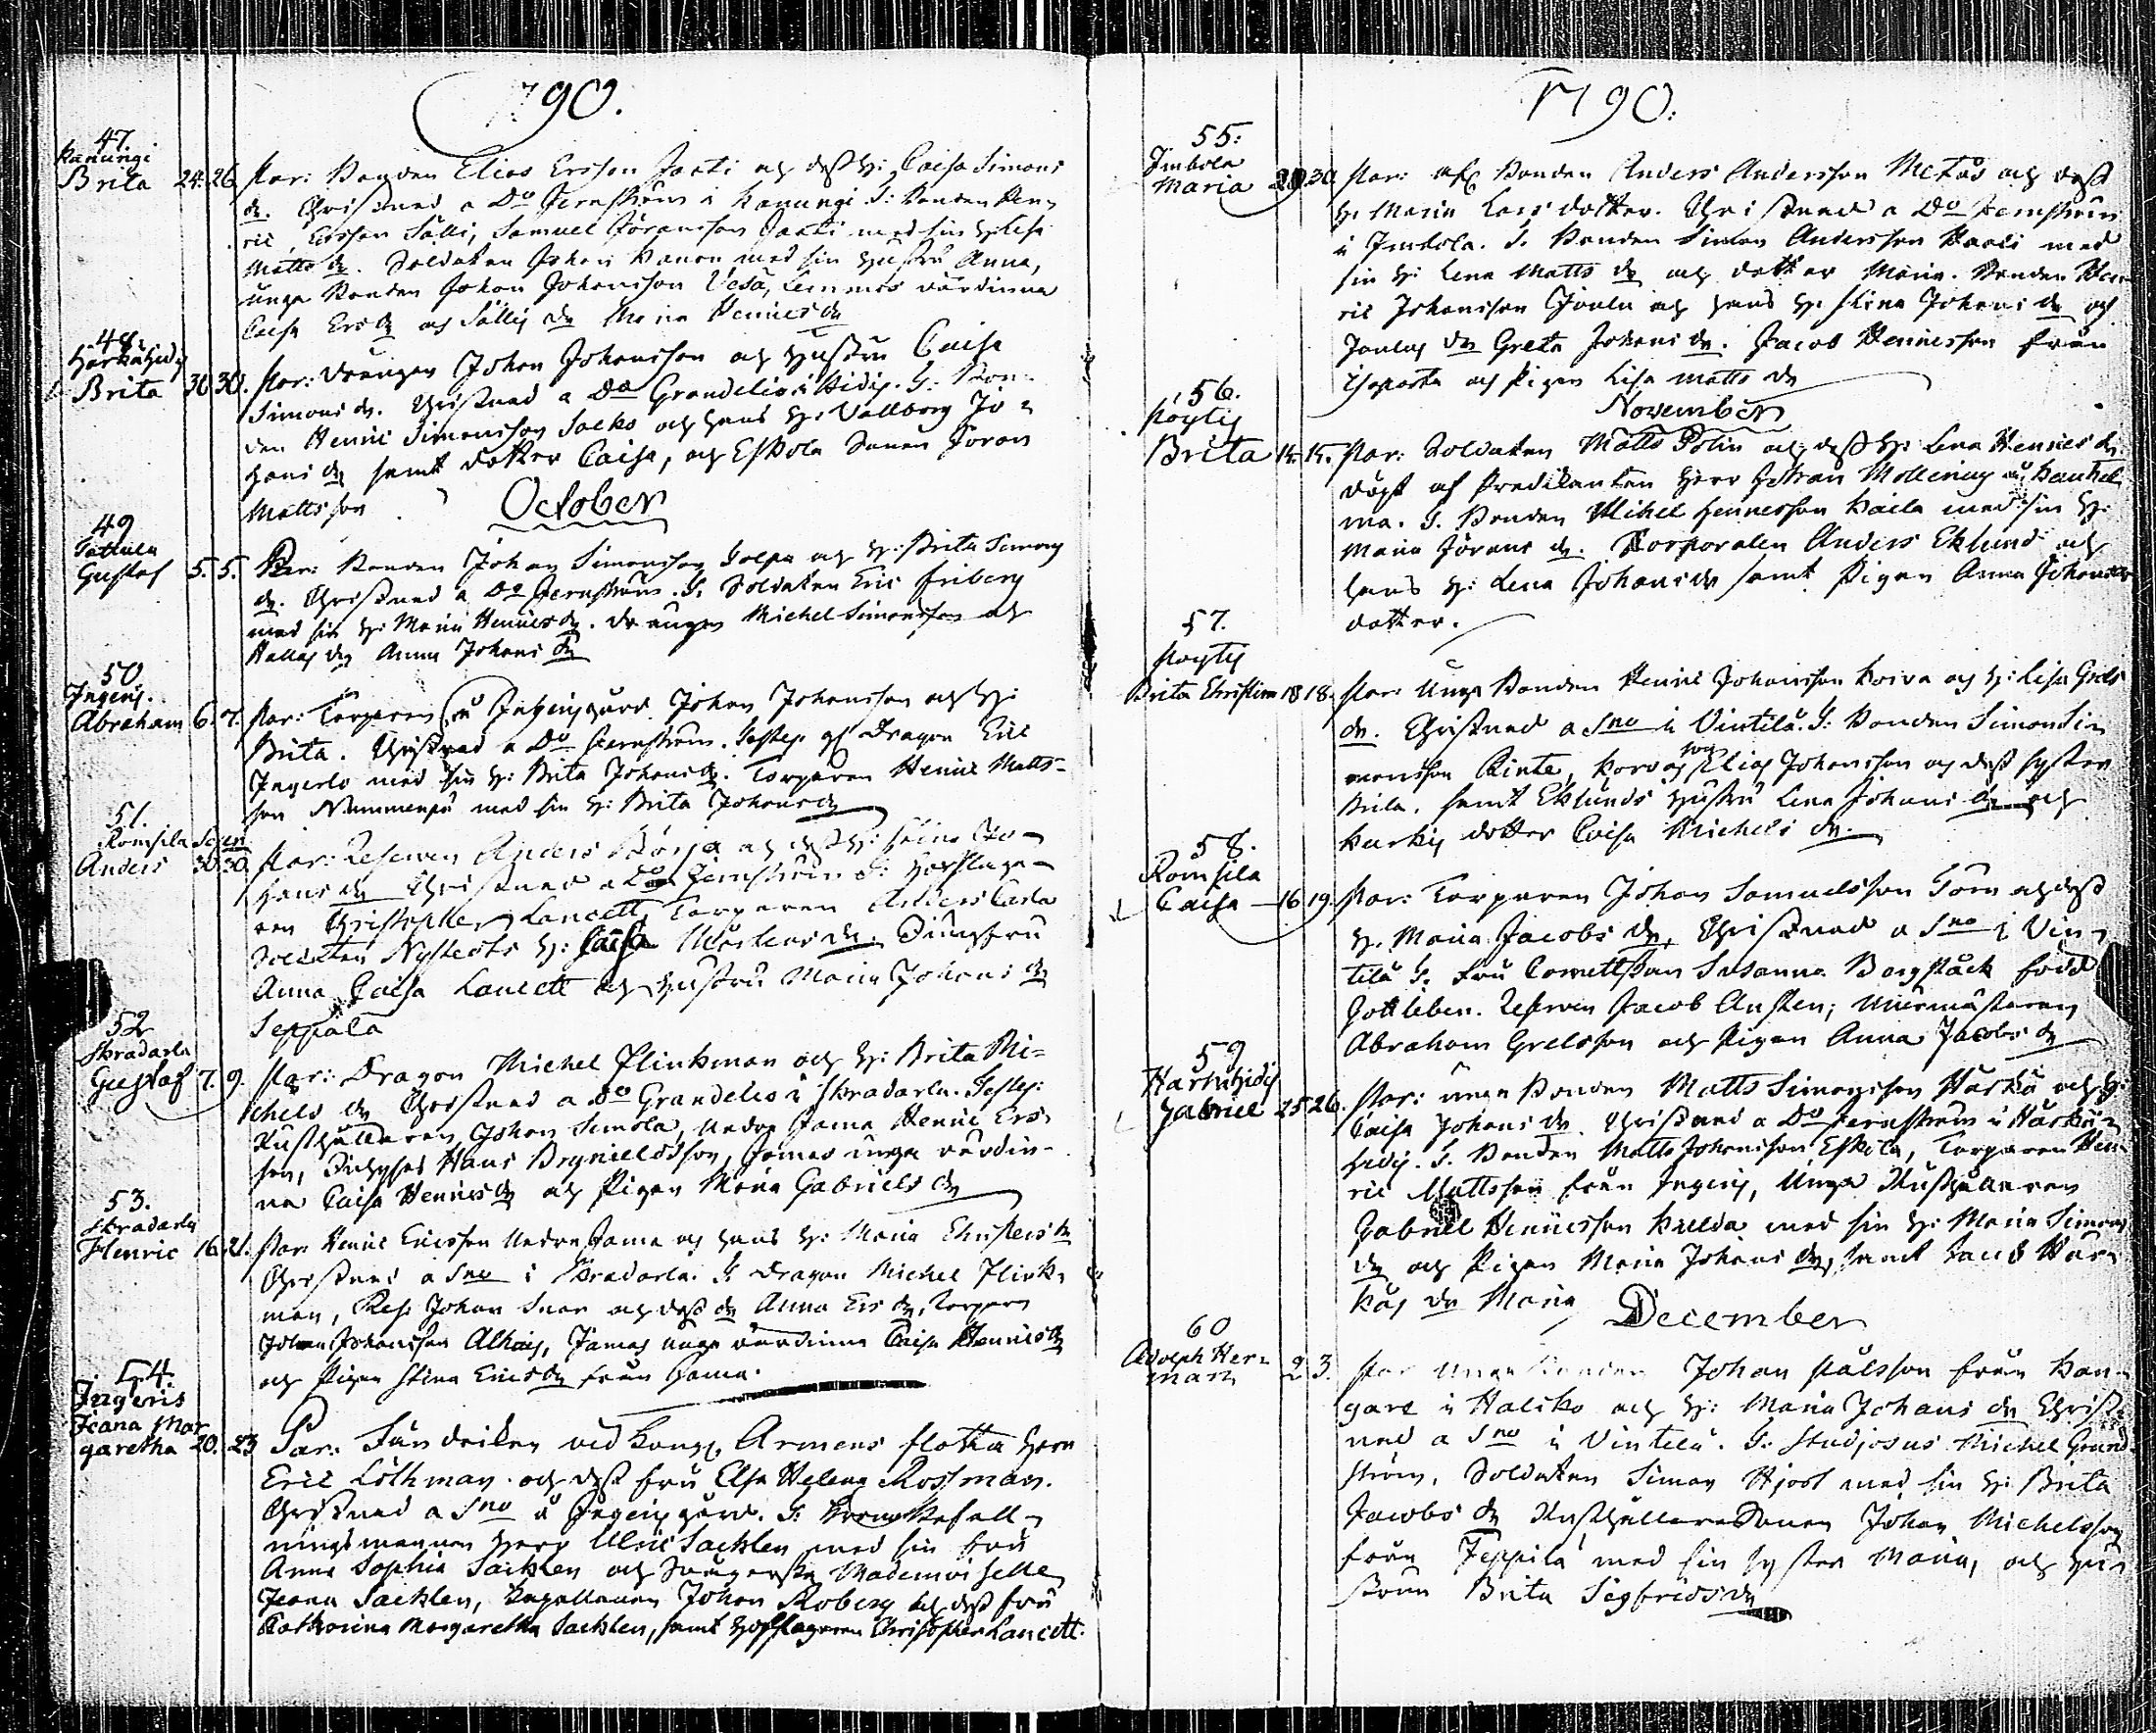 1790.
47.
Kanungi
Brita 24. 26. Par: Bonden Elias Ersson Jaati och dess h: Caisa Simons
dr. Christnad a Do Jernström i Kanungi T: Bonden Hen-
ric Ersson Sälli, Samuel Jöransson Jaati med sin h: Lisa
Matts dr. Soldaten Johan Kanon med sin hustru Anna,
unga Bonden Johan Johansson Vesa, Lemmes värdinna
Caisa Ers dr och Sällis dr Maria Henrics dr
48.
Brita 30 30. Par: Drängen Johan Johansson och hustru Caisa
Simons dr. Christnad a Do Grandelio i Hidis. T: Bon-
den Henric Simonsson Salko och hans h: Vallborg Jo-
hans dr samt dotter Caisa, och Eskola Sonen Jöran
Mattsson
October
49
Tattula
Gustaf 5. 5. Par: Bonden Johan Simonsson Tolpa och h: Brita Simons
dr. Christnad a Do Jernström. T. Soldaten Eric Friberg
med sin h: Maria Henrics dr. Drängen Michel Simonsson och
Kallas dr Anna Johans dr
50.
Ingeris.
Abraham 6. 7. Par: Torparen på Ingerisgård Johan Johansson och h:
Brita. Christnad a Do Jernström. Testes: Dragon Eric
Ingerlo med sin h: Brita Johans dr. Torparen Henric Matts-
son Nummenpä med sin h: Brita Johans dr
51.
Romsila Sepen
Anders 30 30. Par: Reserven Anders Börja och dess h: Stina Jo-
hans dr Christnad a Do Jernström T: Hofslaga-
ren Christopher Lancett, Torparen Anders Carla
Soldaten Nystedts h: Caisa Mårtens dr. Jungfru
Anna Caisa Lancett och hustru Maria Johans dr
Seppälä
52
Skradarla
Gustaf 7. 9. Par: Dragon Michel Flinkman och h: Brita Mi-
chels dr Christnad a Do Grandelio i Skradarla. Testes:
Rusthållaren Johan Simola, Nedre Jama Henric Ers-
son, Hans Brynieldsson, Jamas unga värdin-
na Caisa Henrics dr och Pigan Maria Gabriels dr
53.
Skradarla
Henric 16. 21. Par: Henric Ericsson Nedre Jama och hans h: Maria Christers dr
Christnad a Sno i Skradarla. T. Dragon Michel Flink-
man, Res. Johan Snar och dess dr Anna Ers dr, Torparen
Johan Johansson Alhais, Jamas unga värdinna Caisa Henrics dr
och Pigan Stina Erics dr från Jama.
54.
Ingeris
Jeana Mar
garetha 20. 23 Par: Fändriken vid Kongl. Armens flotta Herr
Eric Löthman och dess fru Elsa Helena Rossman.
Christnad a Sno å Ingeris gård. T: Krono Befall-
ningsmannen Herr Ulric Sacklen med sin fru
Anna Sophia Sacklen och Svägerska Mademoiselle
Jeana Sacklen, Capellanen Johan Roberg och dess fru
Catharina Margaretha Sacklen, samt Hofslagaren Christopher Lancett.
1790.
55.
Imbola
Maria 29 30. Par: Bonden Anders Andersson Metås och dess
h: Maria Lars dotter. Christnad a Do Jernström
i Imbola. T. Bonden Simon Andersson Kaali med
sin h: Lena Matts dr och dotter Maria. Bonden Hen-
ric Johansson Joulu och hans h: Stina Johans dr och
Joulus dr Greta Johans dr. Jacob Henricsson från
Isoperta och Pigan Lisa Matts dr
November
56.
Pöytis
Brita 15. 15. Par: Soldaten Matts Polin och dess h: Lena Henrics dr.
döpt af Predikanten Herr Mollenius i Kauhel
ma. T. Bonden Michel Henricsson Kaila med sin h:
Maria Jörans dr. Corporalen Anders Eklund och
hans h: Lena Johans dr samt Pigan Anna Johans
dotter.
57.
Pöytis
Brita Christina 18 18. Par: Unga Bonden Henric Johansson Koiva och h: Lisa Grels
dr. Christnad a Sno i Vintilä. T: Bonden Simon Si-
monsson Rinte, Korvas son Elias Johansson och dess syster
Brita, samt Eklunds hustru Lena Johans dr och
Kurkis dotter Caisa Michels dr.
58.
Romsila
Caisa 16 19. Par: Torparen Johan Samuelsson Torn och dess
h: Maria Jacobs dr, Christnad a Sno i Vin-
tilä T. Fru Cornettskan Susanna Bergstäck född
Gottleben. Reserven Jacob Austen, Murmästaren
Abraham Grelsson och Pigan Anna Jacobs dr
59
Gabriel 25 26. Par: unga Bonden Matts Simonsson Harkä och h:
Caisa Johans dr. Christnad a Do Jernström i Harkä-
hidis. T. Bonden Matts Johansson Eskola, Torparen Hen-
ric Mattsson från Ingeris, Unga Rusthållaren
Gabriel Henricsson Krelda med sin h: Maria Simons
dr och Pigan Maria Johans dr, samt Jacob Har-
käs dr Maria
December
60
Adolph Her-
man 2 3. Par: Unga Bonden Johan Pålsson från Kan-
gare i Haliko och h: Maria Johans dr Christ-
nad a Sno i Vintilä. T. Studiosus Michel Grund-
ström, Soldaten Simon Hjort med sin h: Brita
Jacobs dr Rusthållare Sonen Johan Michelsson
från Teppilä med sin syster Maria, och hu-
strun Brita Sigfreds dr